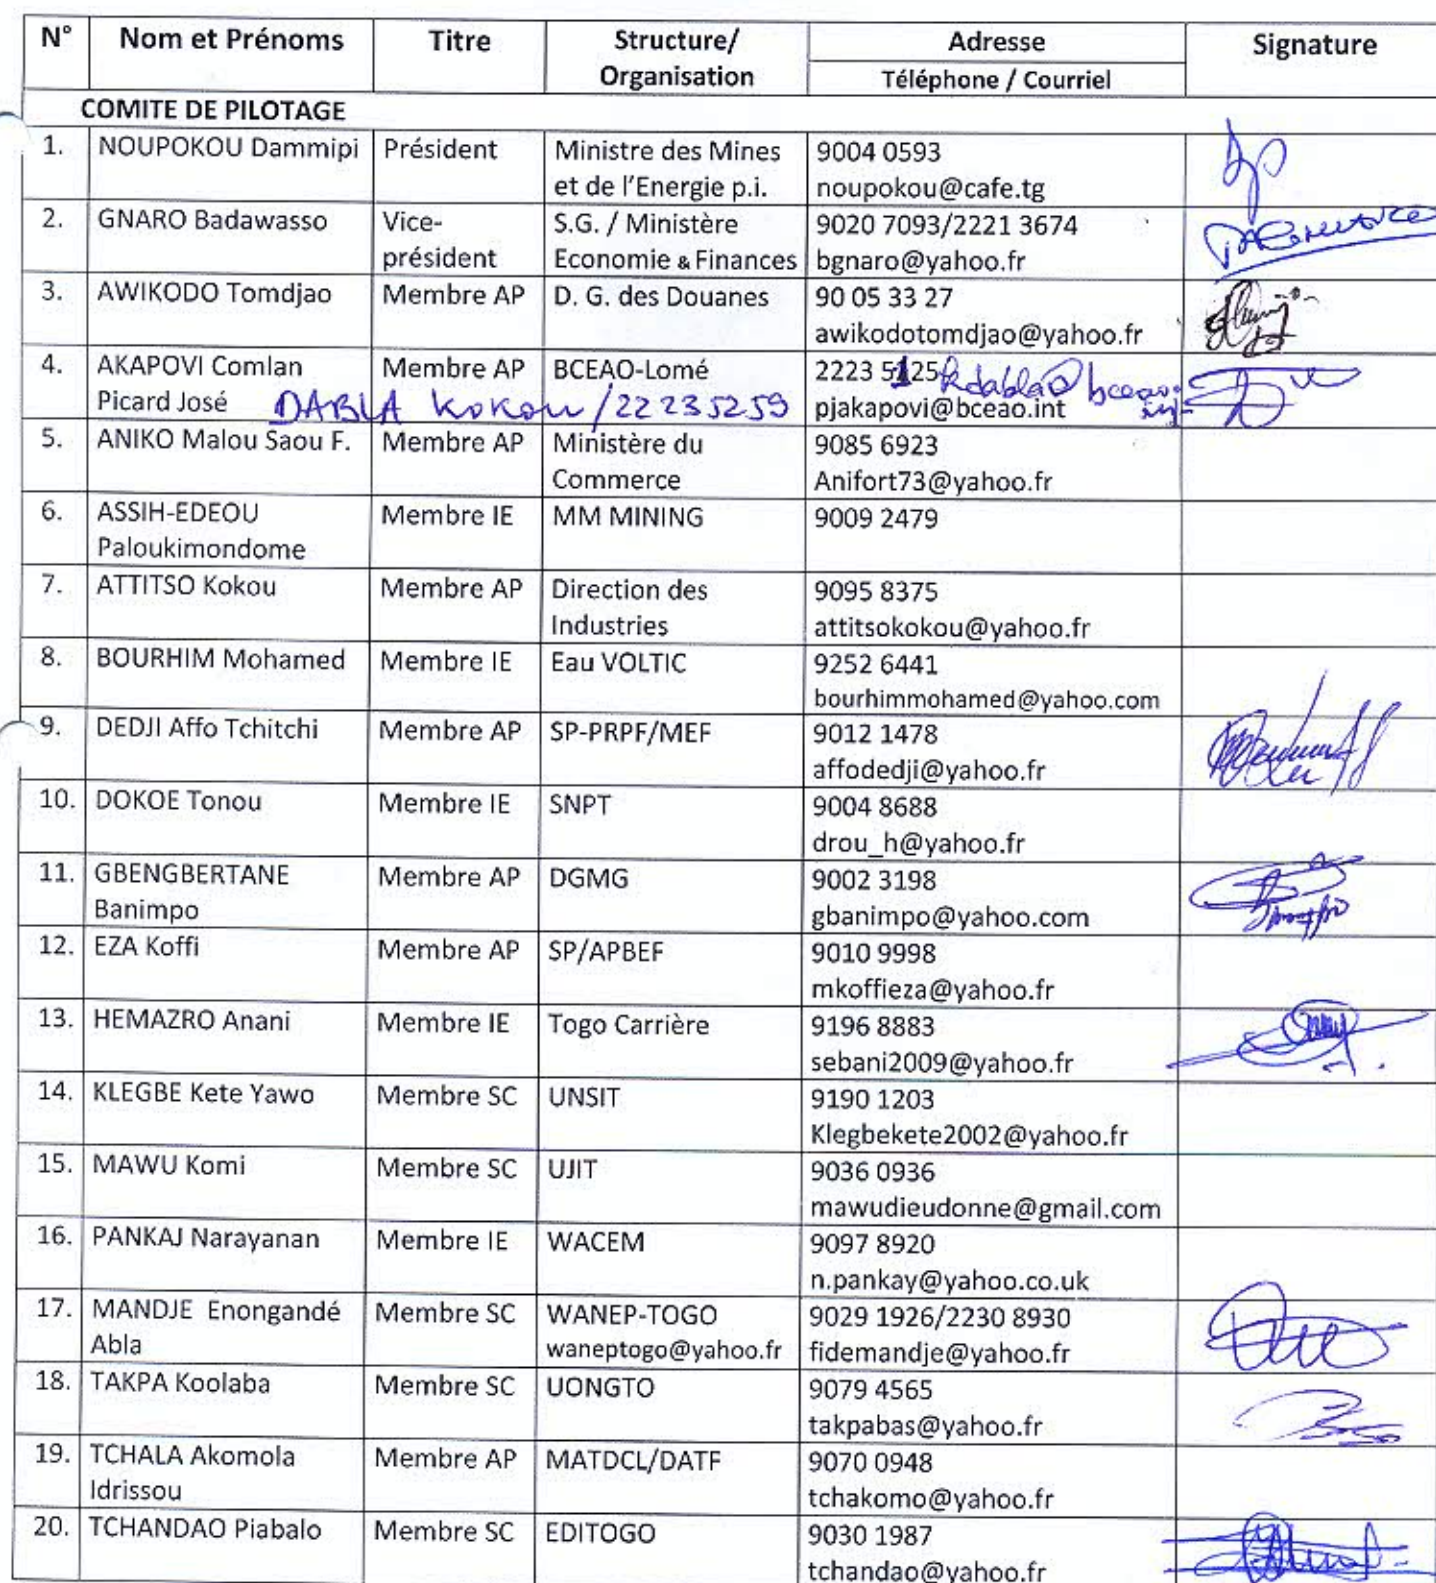 N° Nom et Prénoms Titre Structure/ Organisation Adresse Signature
Téléphone / Courriel
COMITE DE PILOTAGE
1. NOUPOKOU Dammipi Président Ministre des Mines 9004 0593
et de l'Energie p.i. noupokou@cafe.tg
2. GNARO Badawasso Vice- S.G. / Ministère 9020 7093/2221 3674
président Economie & Finances bgnaro@yahoo.fr
3. AWIKODO Tomdjao Membre AP D. G. des Douanes 90 05 33 27
awikodotomdjao@yahoo.fr
4. AKAPOVI Comlan Membre AP BCEAO-Lomé 2223
Picard José DABLA Kokou /22235259 pjakapovi@bceao.int
5. ANIKO Malou Saou F. Membre AP Ministère du 9085 6923
Commerce Anifort73@yahoo.fr
6. ASSIH-EDEOU Membre IE MM MINING 9009 2479
Paloukimondome
7. ATTITSO Kokou Membre AP Direction des 9095 8375
Industries attitsokokou@yahoo.fr
8. BOURHIM Mohamed Membre IE Eau VOLTIC 9252 6441
bourhimmohamed@yahoo.com
9. DEDJI Affo Tchitchi Membre AP SP-PRPF/MEF 9012 1478
affodedji@yahoo.fr
10. DOKOE Tonou Membre IE SNPT 9004 8688
drou_h@yahoo.fr
11. GBENGBERTANE Membre AP DGMG 9002 3198
Banimpo gbanimpo@yahoo.com
12. EZA Koffi Membre AP SP/APBEF 9010 9998
mkoffieza@yahoo.fr
13. HEMAZRO Anani Membre IE Togo Carrière 9196 8883
sebani2009@yahoo.fr
14. KLEGBE Kete Yawo Membre SC UNSIT 9190 1203
Klegbekete2002@yahoo.fr
15. MAWU Komi Membre SC UJIT 9036 0936
mawudieudonne@gmail.com
16. PANKAJ Narayanan Membre IE WACEM 9097 8920
n.pankay@yahoo.co.uk
17. MANDJE Enongandé Membre SC WANEP-TOGO 9029 1926/2230 8930
Abla waneptogo@yahoo.fr fidemandje@yahoo.fr
18. TAKPA Koolaba Membre SC UONGTO 9079 4565
takpabas@yahoo.fr
19. TCHALA Akomola Membre AP MATDCL/DATF 9070 0948
Idrissou tchakomo@yahoo.fr
20. TCHANDAO Piabalo Membre SC EDITOGO 9030 1987
tchandao@yahoo.fr